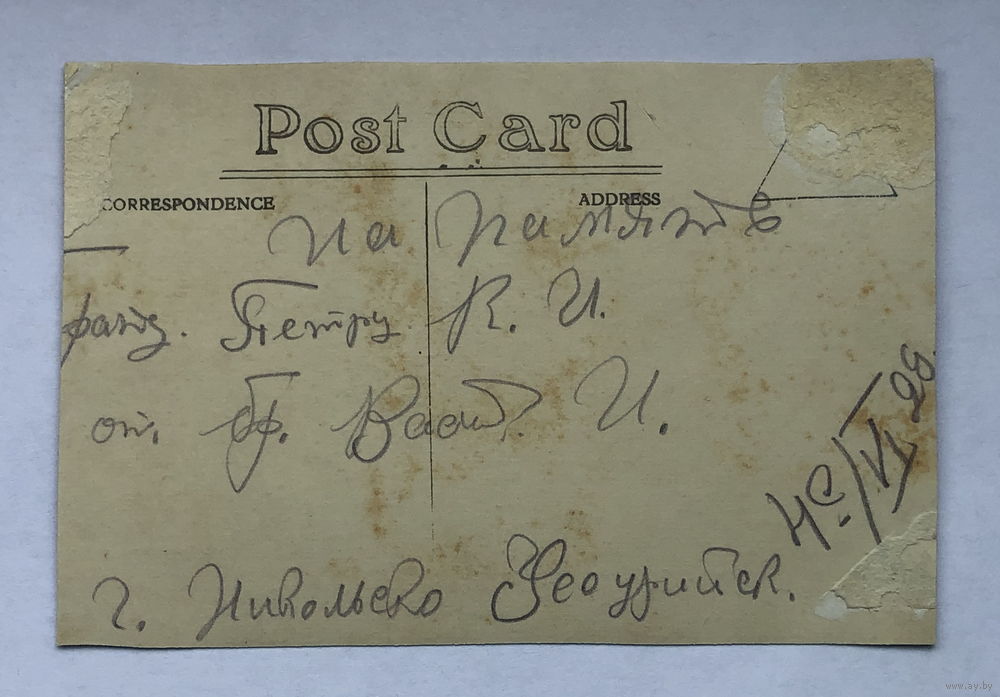 Post Card
CORRESPONDENCE
ADDRESS
На память
Петру К. И.
от. бр. И.
4с./VI 26
г. Никольско Уссурийск.
www.ay.by